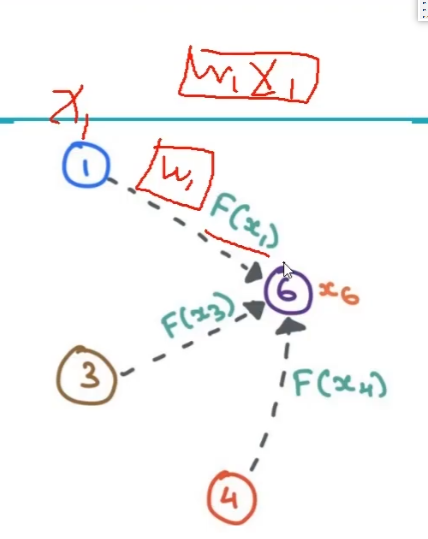 w₁ x₁
x₁
1
w₁
F(x₁)
6
x₆
F(x₃)
3
F(x₄)
4